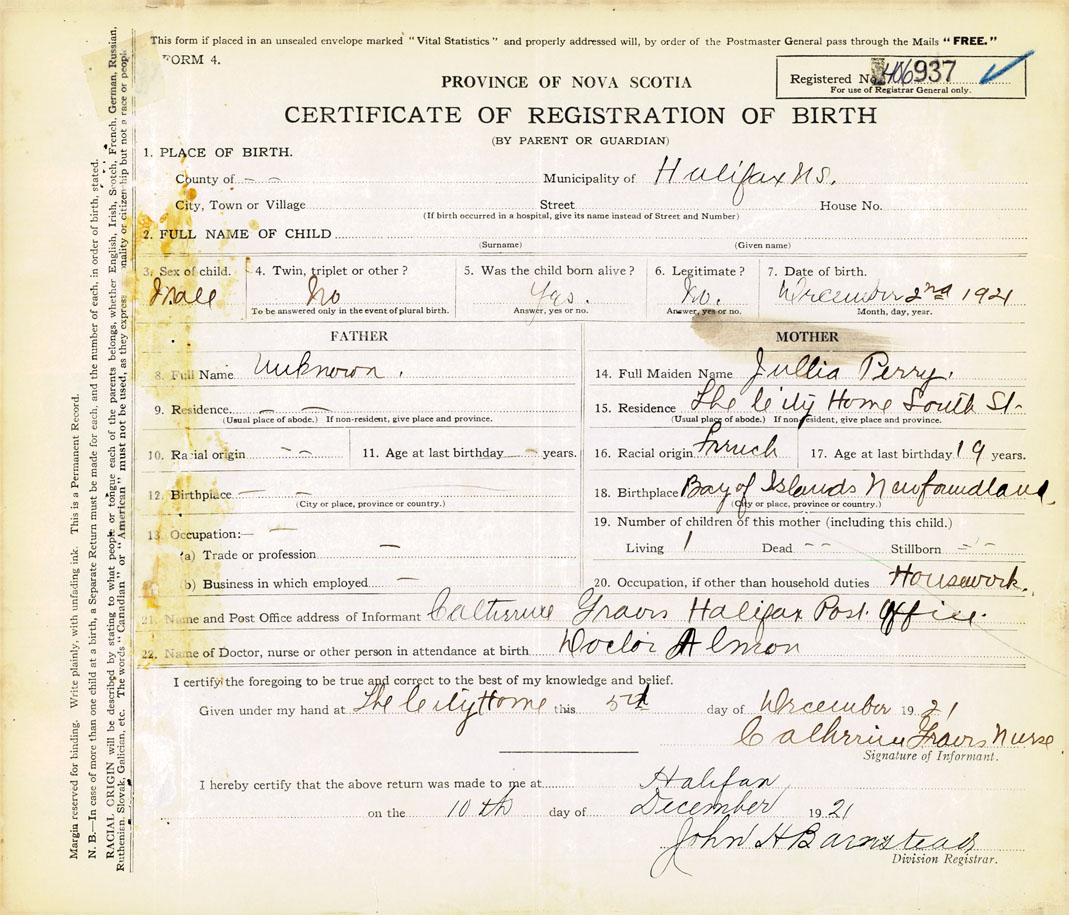 This form if placed in an unsealed envelope marked "Vital Statistics" and properly addressed will, by order of the Postmaster General pass through the Mails "FREE."
FORM 4.
Registered No. 406937
For use of Registrar General only.
PROVINCE OF NOVA SCOTIA
CERTIFICATE OF REGISTRATION OF BIRTH
(BY PARENT OR GUARDIAN)
1. PLACE OF BIRTH.
County of – – Municipality of Halifax NS.
City, Town or Village Street House No.
(If birth occurred in a hospital, give its name instead of Street and Number)
2. FULL NAME OF CHILD
(Surname) (Given name)
3. Sex of child. 4. Twin, triplet or other? 5. Was the child born alive? 6. Legitimate? 7. Date of birth.
Male No Yes. No. December 2nd 1921
To be answered only in the event of plural birth. Answer, yes or no. Answer, yes or no. Month, day, year.
FATHER MOTHER
8. Full Name Unknown. 14. Full Maiden Name Jullia Perry.
9. Residence – – 15. Residence The City Home South St-
(Usual place of abode.) If non-resident, give place and province. (Usual place of abode.) If non-resident, give place and province.
10. Racial origin – – 11. Age at last birthday – years. 16. Racial origin French 17. Age at last birthday 19 years.
12. Birthplace – – 18. Birthplace Bay of Islands Newfoundland
(City or place, province or country.) (City or place, province or country.)
13. Occupation:— – 19. Number of children of this mother (including this child.)
(a) Trade or profession – Living 1 Dead – – Stillborn – –
(b) Business in which employed – 20. Occupation, if other than household duties Housework.
21. Name and Post Office address of Informant Catherine Travis Halifax Post Office.
22. Name of Doctor, nurse or other person in attendance at birth Doctor Almon
I certify the foregoing to be true and correct to the best of my knowledge and belief.
Given under my hand at The City Home this 5th day of December 1921
Catherine Travis Nurse
Signature of Informant.
I hereby certify that the above return was made to me at Halifax
on the 10th day of December 1921
John H Barnstead
Division Registrar.
Margin reserved for binding. Write plainly, with unfading ink. This is a Permanent Record.
N. B.—In case of more than one child at a birth, a Separate Return must be made for each, and the number of each, in order of birth, stated.
RACIAL ORIGIN will be described by stating to what people or tongue each of the parents belongs, whether English, Irish, Scotch, French, German, Russian,
Ruthenian, Slovak, Galician, etc. The words "Canadian" or "American" must not be used, as they express nationality or citizenship but not a race or people.